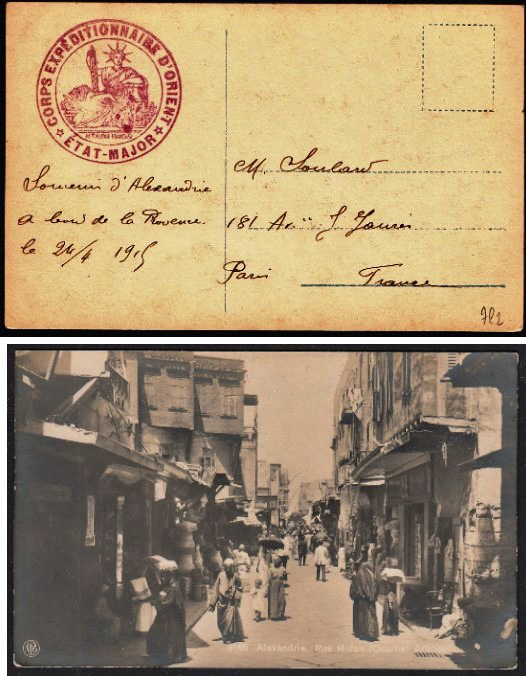 CORPS EXPÉDITIONNAIRE D'ORIENT
★ ÉTAT-MAJOR ★
Souvenir d'Alexandrie
a bord de la Provence
le 24/4 1915
M. Soulard
181 J. Jaurès
Paris France
782
Alexandrie, Rue Midan (Quartier